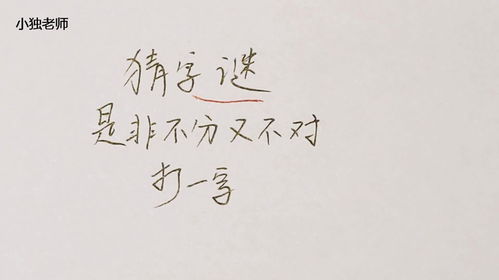 小独老师
猜字谜
是非不分又不对
打一字